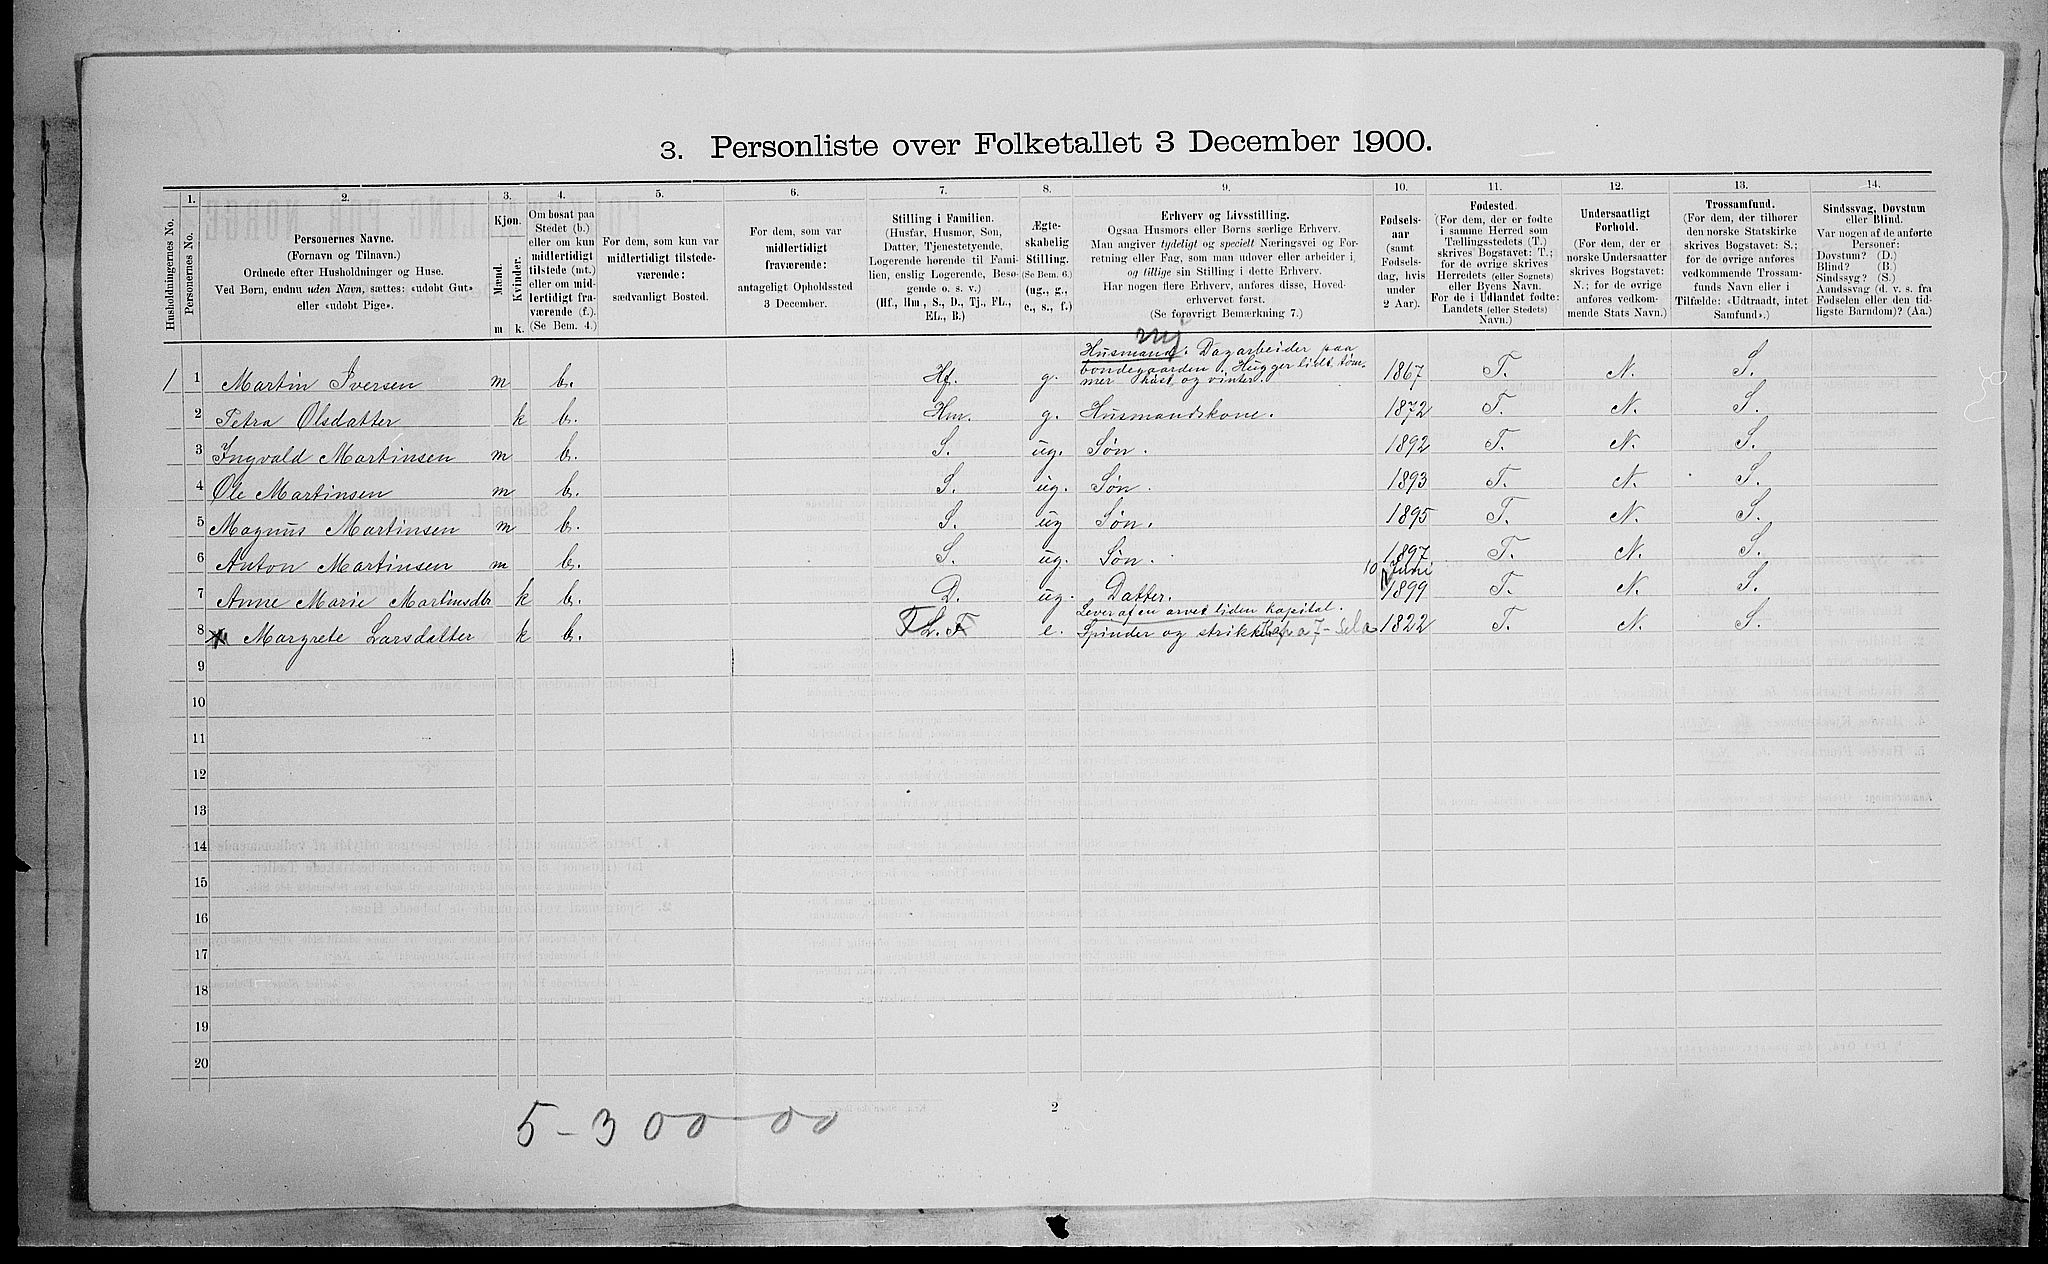 3. Personliste over Folketallet 3 December 1900.
1. 2. 3. 4. 5. 6. 7. 8. 9. 10. 11. 12. 13. 14.
Husholdningernes No.
Personernes No.
Personernes Navne.
(Fornavn og Tilnavn.)
Ordnede efter Husholdninger og Huse.
Ved Børn, endnu uden Navn, sættes: «udøbt Gut»
eller «udøbt Pige».
Kjøn.
Mænd.
Kvinder.
m k.
Om bosat paa
Stedet (b.)
eller om kun
midlertidigt
tilstede (mt.)
eller om mid-
lertidigt fra-
værende (f.).
(Se Bem. 4.)
For dem, som kun var
midlertidigt tilstede-
værende:
sædvanligt Bosted.
For dem, som var
midlertidigt
fraværende:
antageligt Opholdssted
3 December.
Stilling i Familien.
(Husfar, Husmor, Søn,
Datter, Tjenestetyende,
Logerende hørende til Fami-
lien, enslig Logerende, Besø-
gende o. s. v.)
(Hf., Hm., S., D., Tj., FL.,
EL., B.)
Ægte-
skabelig
Stilling.
(Se Bem. 6.)
(ug., g.,
e., s., f.)
Erhverv og Livsstilling.
Ogsaa Husmors eller Børns særlige Erhverv.
Man angiver tydeligt og specielt Næringsvei og For-
retning eller Fag, som man udøver eller arbeider i,
og tillige sin Stilling i dette Erhverv.
Har nogen flere Erhverv, anføres disse, Hoved-
erhvervet først.
(Se forøvrigt Bemærkning 7.)
Fødsels-
aar
(samt
Fødsels-
dag, hvis
under
2 Aar).
Fødested.
(For dem, der er fødte
i samme Herred som
Tællingsstedets (T.)
skrives Bogstavet: T.;
for de øvrige skrives
Herredets (eller Sognets)
eller Byens Navn.
For de i Udlandet fødte:
Landets (eller Stedets)
Navn.)
Undersaatligt
Forhold.
(For dem, der er
norske Undersaatter
skrives Bogstavet:
N.; for de øvrige
anføres vedkom-
mende Stats Navn.)
Trossamfund.
(For dem, der tilhører
den norske Statskirke
skrives Bogstavet: S.;
for de øvrige anføres
vedkommende Trossam-
funds Navn eller i
Tilfælde: «Udtraadt, intet
Samfund».)
Sindssvag, Døvstum
eller Blind.
Var nogen af de anførte
Personer:
Døvstum? (D.)
Blind? (B.)
Sindssyg? (S.)
Aandssvag (d. v. s. fra
Fødselen eller den tid-
ligste Barndom)? (Aa.)
1 1 Martin Iversen m b. Hf. g. Husmand: Dagarbeider paa
bondegaarden. Hugger lidt tøm-
mer høst og vinter. 1867 T. N. S.
2 Petra Olsdatter k b. Hm. g. Husmandskone. 1872 T. N. S.
3 Ingvald Martinsen m b. S. ug. Søn. 1892 T. N. S.
4 Ole Martinsen m b. S. ug. Søn. 1893 T. N. S.
5 Magnus Martinsen m b. S. ug Søn. 1895 T. N. S.
6 Anton Martinsen m b. S. ug. Søn. 1897 T. N. S.
10 Juni
7 Anne Marie Martinsdtr k b. D. ug. Datter. 1899 T. N. S.
Lever af en arvet liden kapital.
8 Margrete Larsdatter k b. L. F e. Spinder og strikker 1822 T. N. S.
9
10
11
12
13
14
15
16
17
18
19
20
5-300-00
2